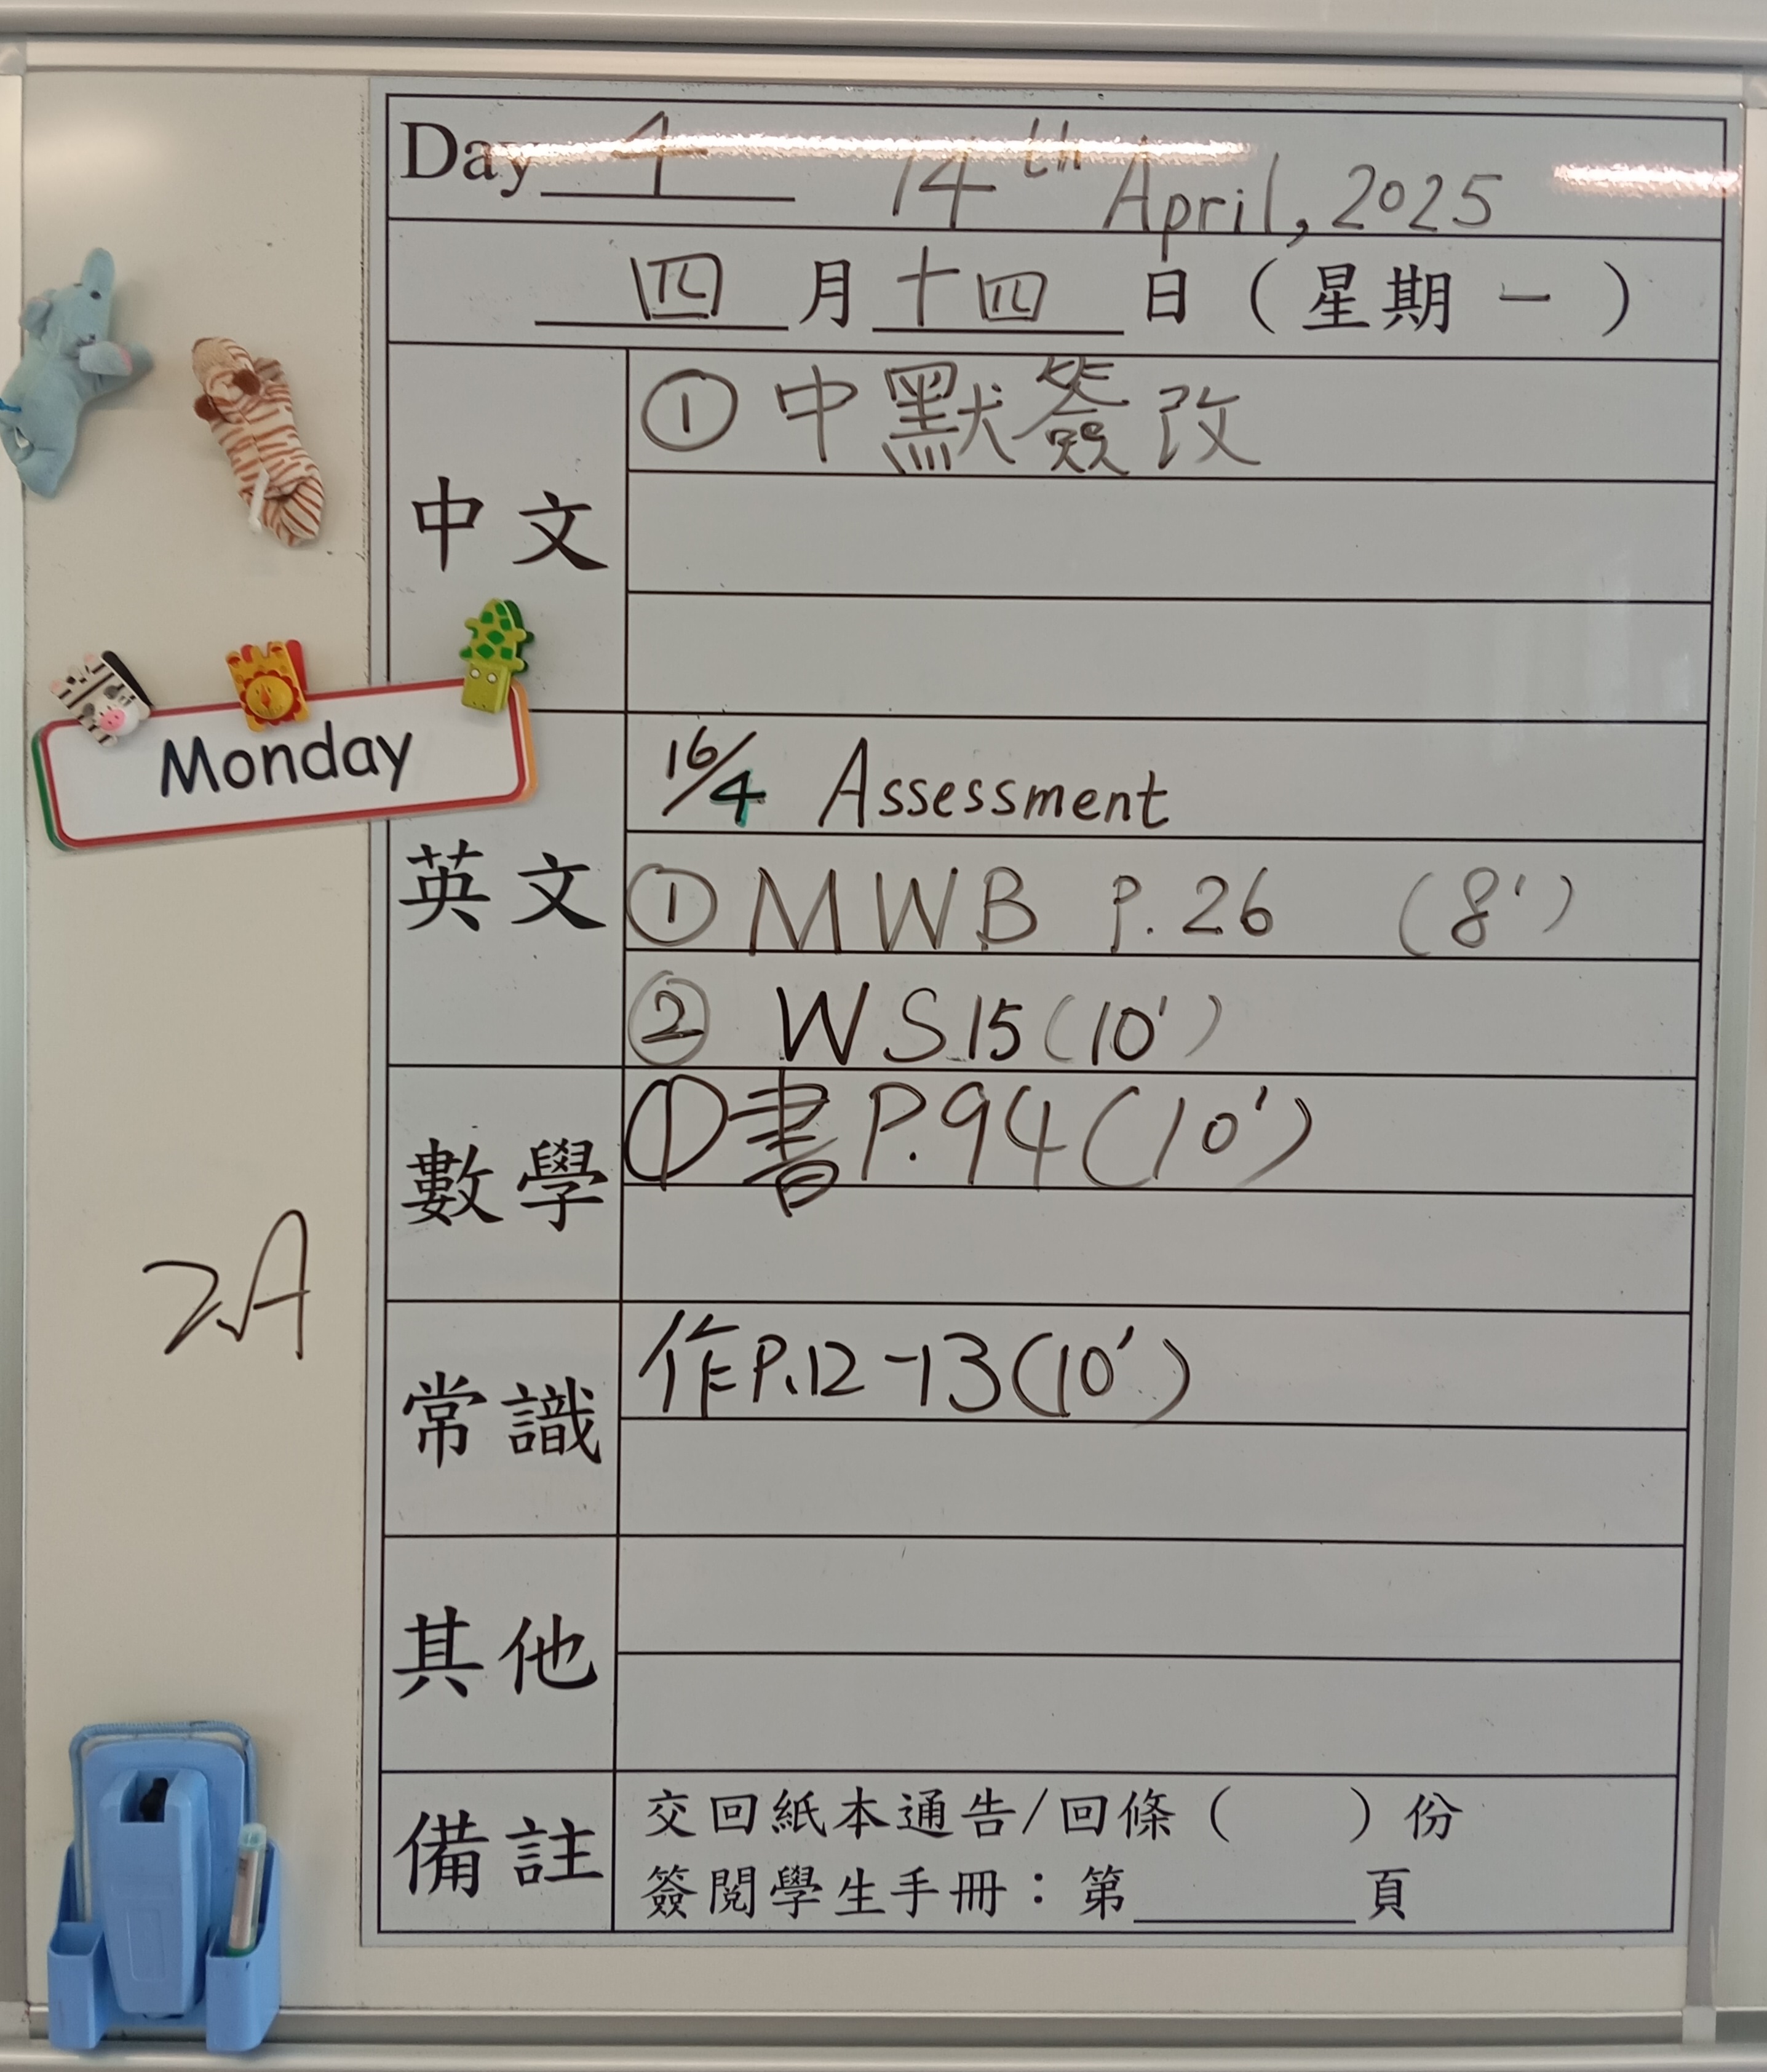 Day 4 14th April, 2025
四 月 十四 日 ( 星期 一 )
中文
① 中默簽改
Monday
英文
16/4 Assessment
① MWB P.26 (8')
② WS15 (10')
數學
① 書 P.94 (10')
2A
常識
作P.12-13(10')
其他
備註
交回紙本通告/回條 ( ) 份
簽閱學生手冊：第______頁